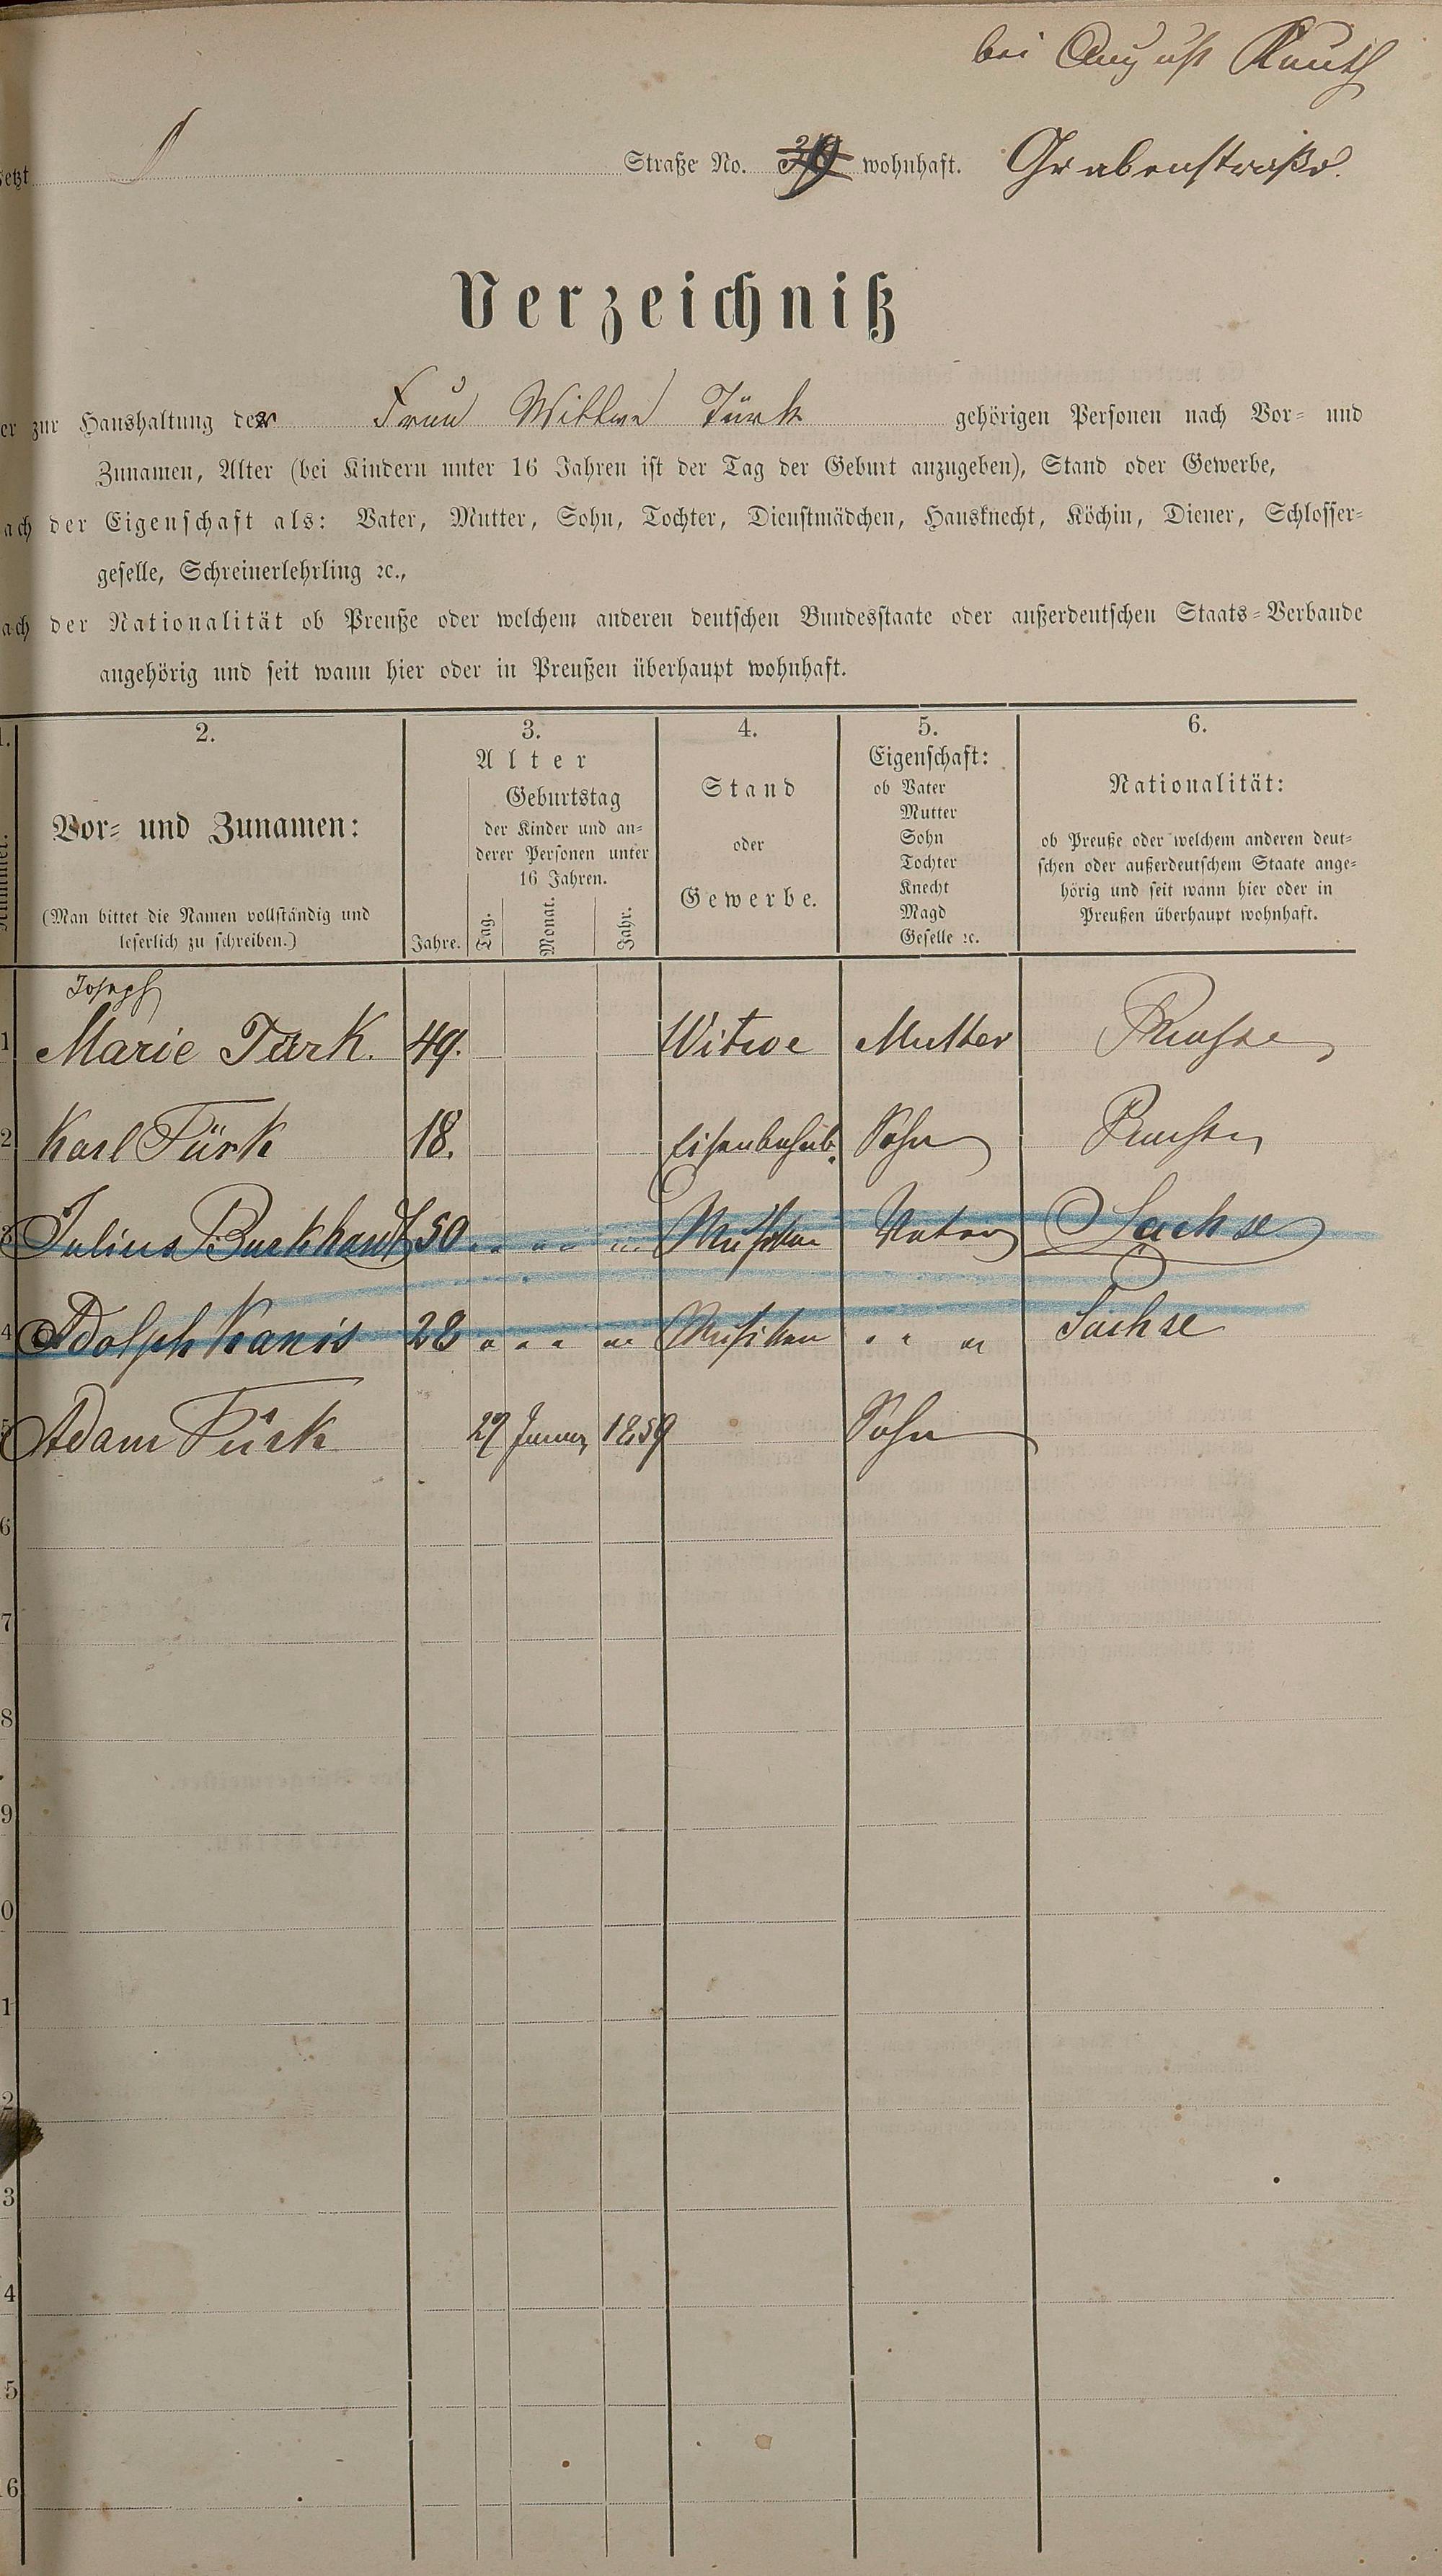 bei August Knuth
etzt Straße No. 39 wohnhaft. Grabenstraße.
Verzeichniß
er zur Haushaltung der Frau Wittwe Türk gehörigen Personen nach Vor- und
Zunamen, Alter (bei Kindern unter 16 Jahren ist der Tag der Geburt anzugeben), Stand oder Gewerbe,
ach der Eigenschaft als: Vater, Mutter, Sohn, Tochter, Dienstmädchen, Hausknecht, Köchin, Diener, Schlosser-
geselle, Schreinerlehrling ꝛc.,
ach der Nationalität ob Preuße oder welchem anderen deutschen Bundesstaate oder außerdeutschen Staats-Verbande
angehörig und seit wann hier oder in Preußen überhaupt wohnhaft.
2.
Vor- und Zunamen:
(Man bittet die Namen vollständig und
leserlich zu schreiben.)
3.
Alter
Geburtstag
der Kinder und an-
derer Personen unter
16 Jahren.
Jahre. Tag. Monat. Jahr.
4.
Stand
oder
Gewerbe.
5.
Eigenschaft:
ob Vater
Mutter
Sohn
Tochter
Knecht
Magd
Geselle ꝛc.
6.
Nationalität:
ob Preuße oder welchem anderen deut-
schen oder außerdeutschem Staate ange-
hörig und seit wann hier oder in
Preußen überhaupt wohnhaft.
Joseph
1 Marie Türk. 49. Witwe Mutter Preusse
2 Karl Türk 18. Eisenbahnb. Sohn Preusse
3 Julius Burkhardt 50 Musiker Vater Sachse
4 Adolph Kanis 28 Musiker Sachse
5 Adam Türk 29 Januar 1859 Sohn
6
7
8
9
0
1
2
3
4
5
6